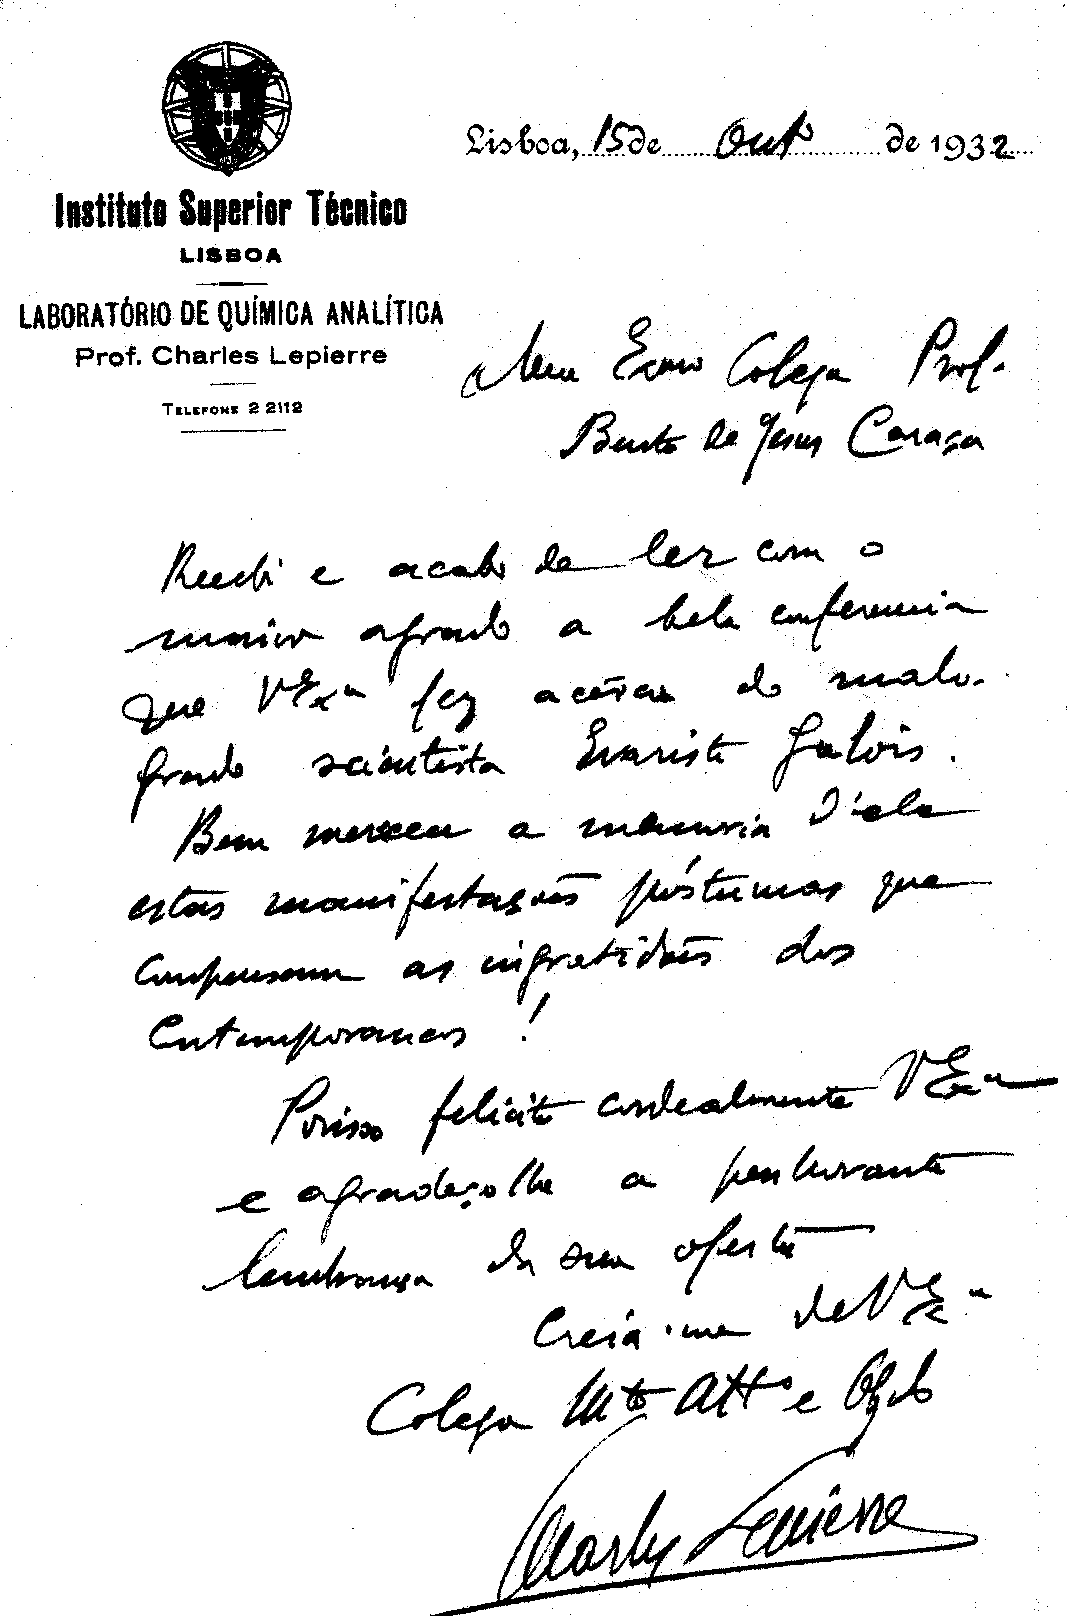 Lisboa, 15 de Outº de 1932
Instituto Superior Técnico
LISBOA
LABORATÓRIO DE QUÍMICA ANALÍTICA
Prof. Charles Lepierre
TELEFONE 2 2112
Meu Exmo Colega Prof.
Bento de Jesus Caraça
Recebi e acabo de ler com o
maior agrado a bela conferencia
que V Exª fez acêrca do malo-
grado scientista Evariste Galois.
Bem merece a memoria d'ele
estas manifestações póstumas que
compensam as ingratidões dos
contemporaneos!
Porisso felicito cordealmente V Exª
e agradeço lhe a penhorante
lembrança da sua oferta
Creia-me de V Exª
Colega Mtº Attº e Obgdo
Charles Lepierre